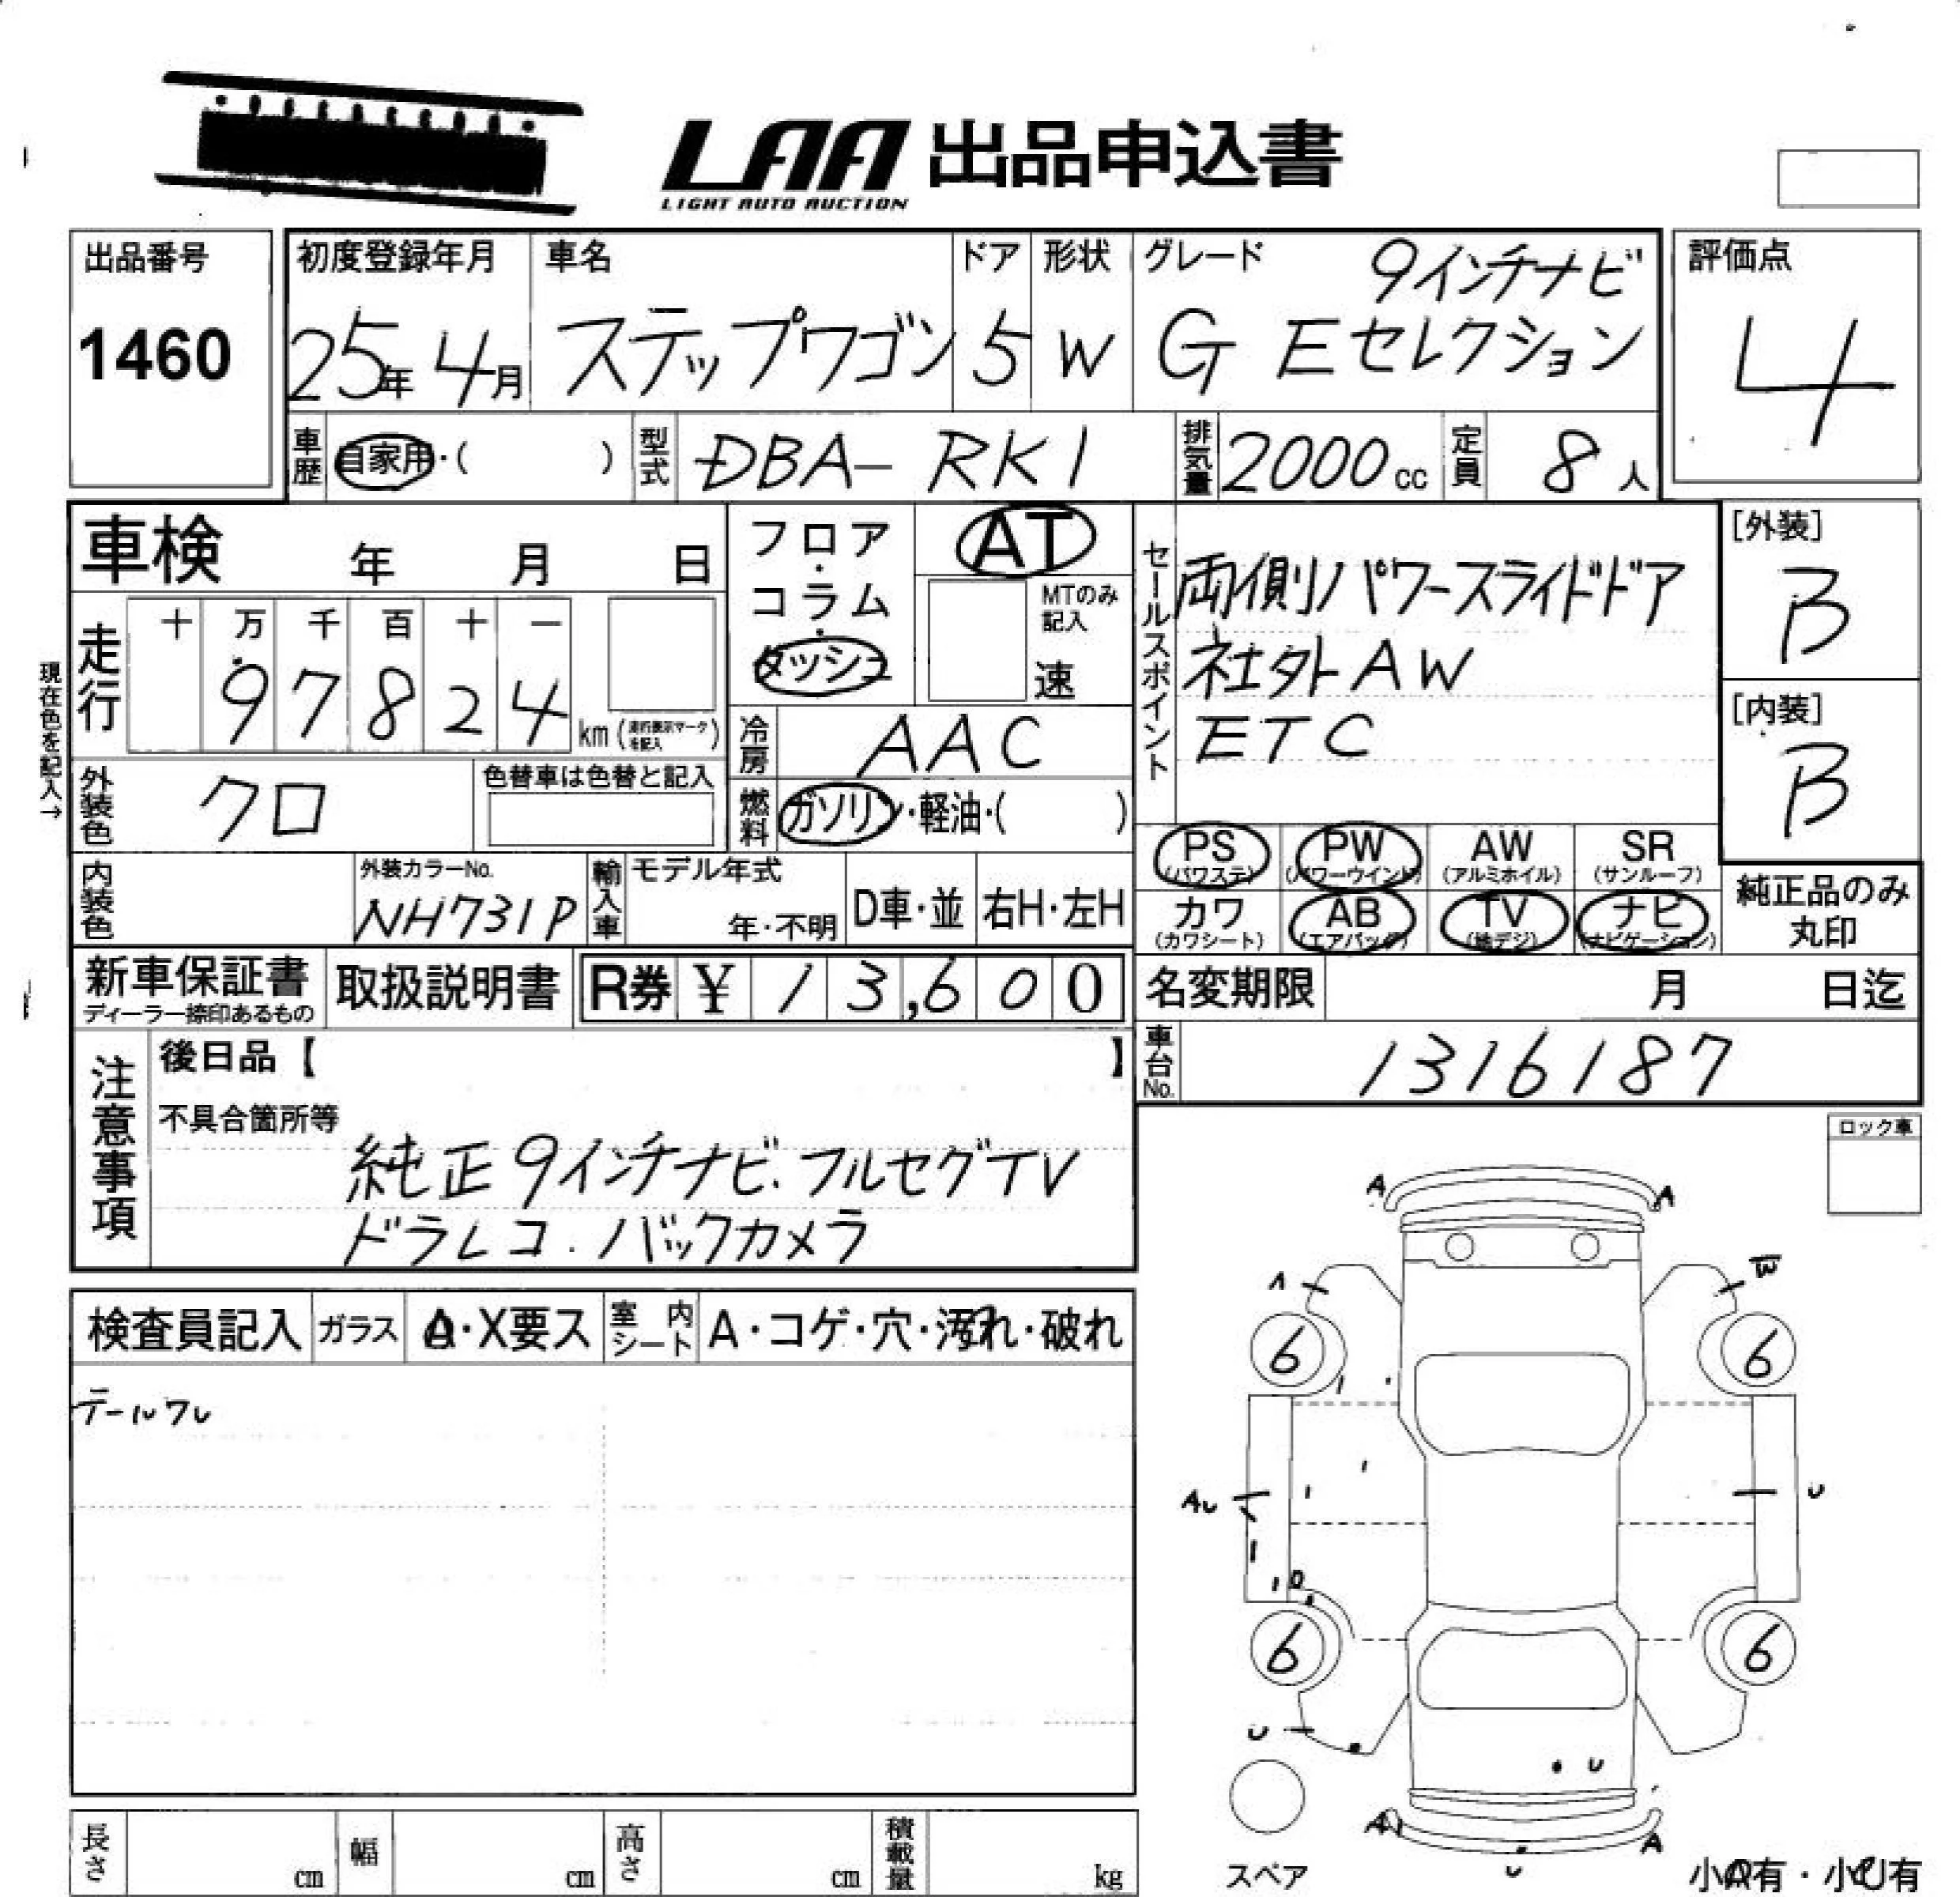 LAA 出品申込書
LIGHT AUTO AUCTION
出品番号
1460
初度登録年月
25年 4月
車名
ステップワゴン
ドア
5
形状
W
グレード
9インチナビ
G Eセレクション
評価点
4
車歴
自家用・( )
型式
DBA-RK1
排気量
2000cc
定員
8人
車検 年 月 日
フロア・
コラム・
ダッシュ
AT
MTのみ
記入
速
セールスポイント
両側パワースライドドア
社外AW
ETC
[外装]
B
[内装]
B
現在色を記入→
走行
十 万 千 百 十 一
9 7 8 2 4 km (走行表示マークを記入)
冷房
AAC
外装色
クロ
色替車は色替と記入
燃料
ガソリン・軽油・( )
PS
(パワステ)
PW
(パワーウインド)
AW
(アルミホイル)
SR
(サンルーフ)
カワ
(カワシート)
AB
(エアバッグ)
TV
(地デジ)
ナビ
(ナビゲーション)
純正品のみ
丸印
内装色
外装カラーNo.
NH731P
輸入車
モデル年式
年・不明
D車・並
右H・左H
新車保証書
ディーラー捺印あるもの
取扱説明書
R券 ¥ 13,600
名変期限 月 日迄
車台No.
1316187
注意事項
後日品【 】
不具合箇所等
純正9インチナビ.フルセグTV
ドラレコ.バックカメラ
ロック車
検査員記入
ガラス
A・X要ス
室内シート
A・コゲ・穴・汚れ・破れ
テールワレ
A A
A W
6 6
AU U
6 6
U
U
A A
U
スペア
小A有・小U有
長さ cm
幅 cm
高さ cm
積載量 kg